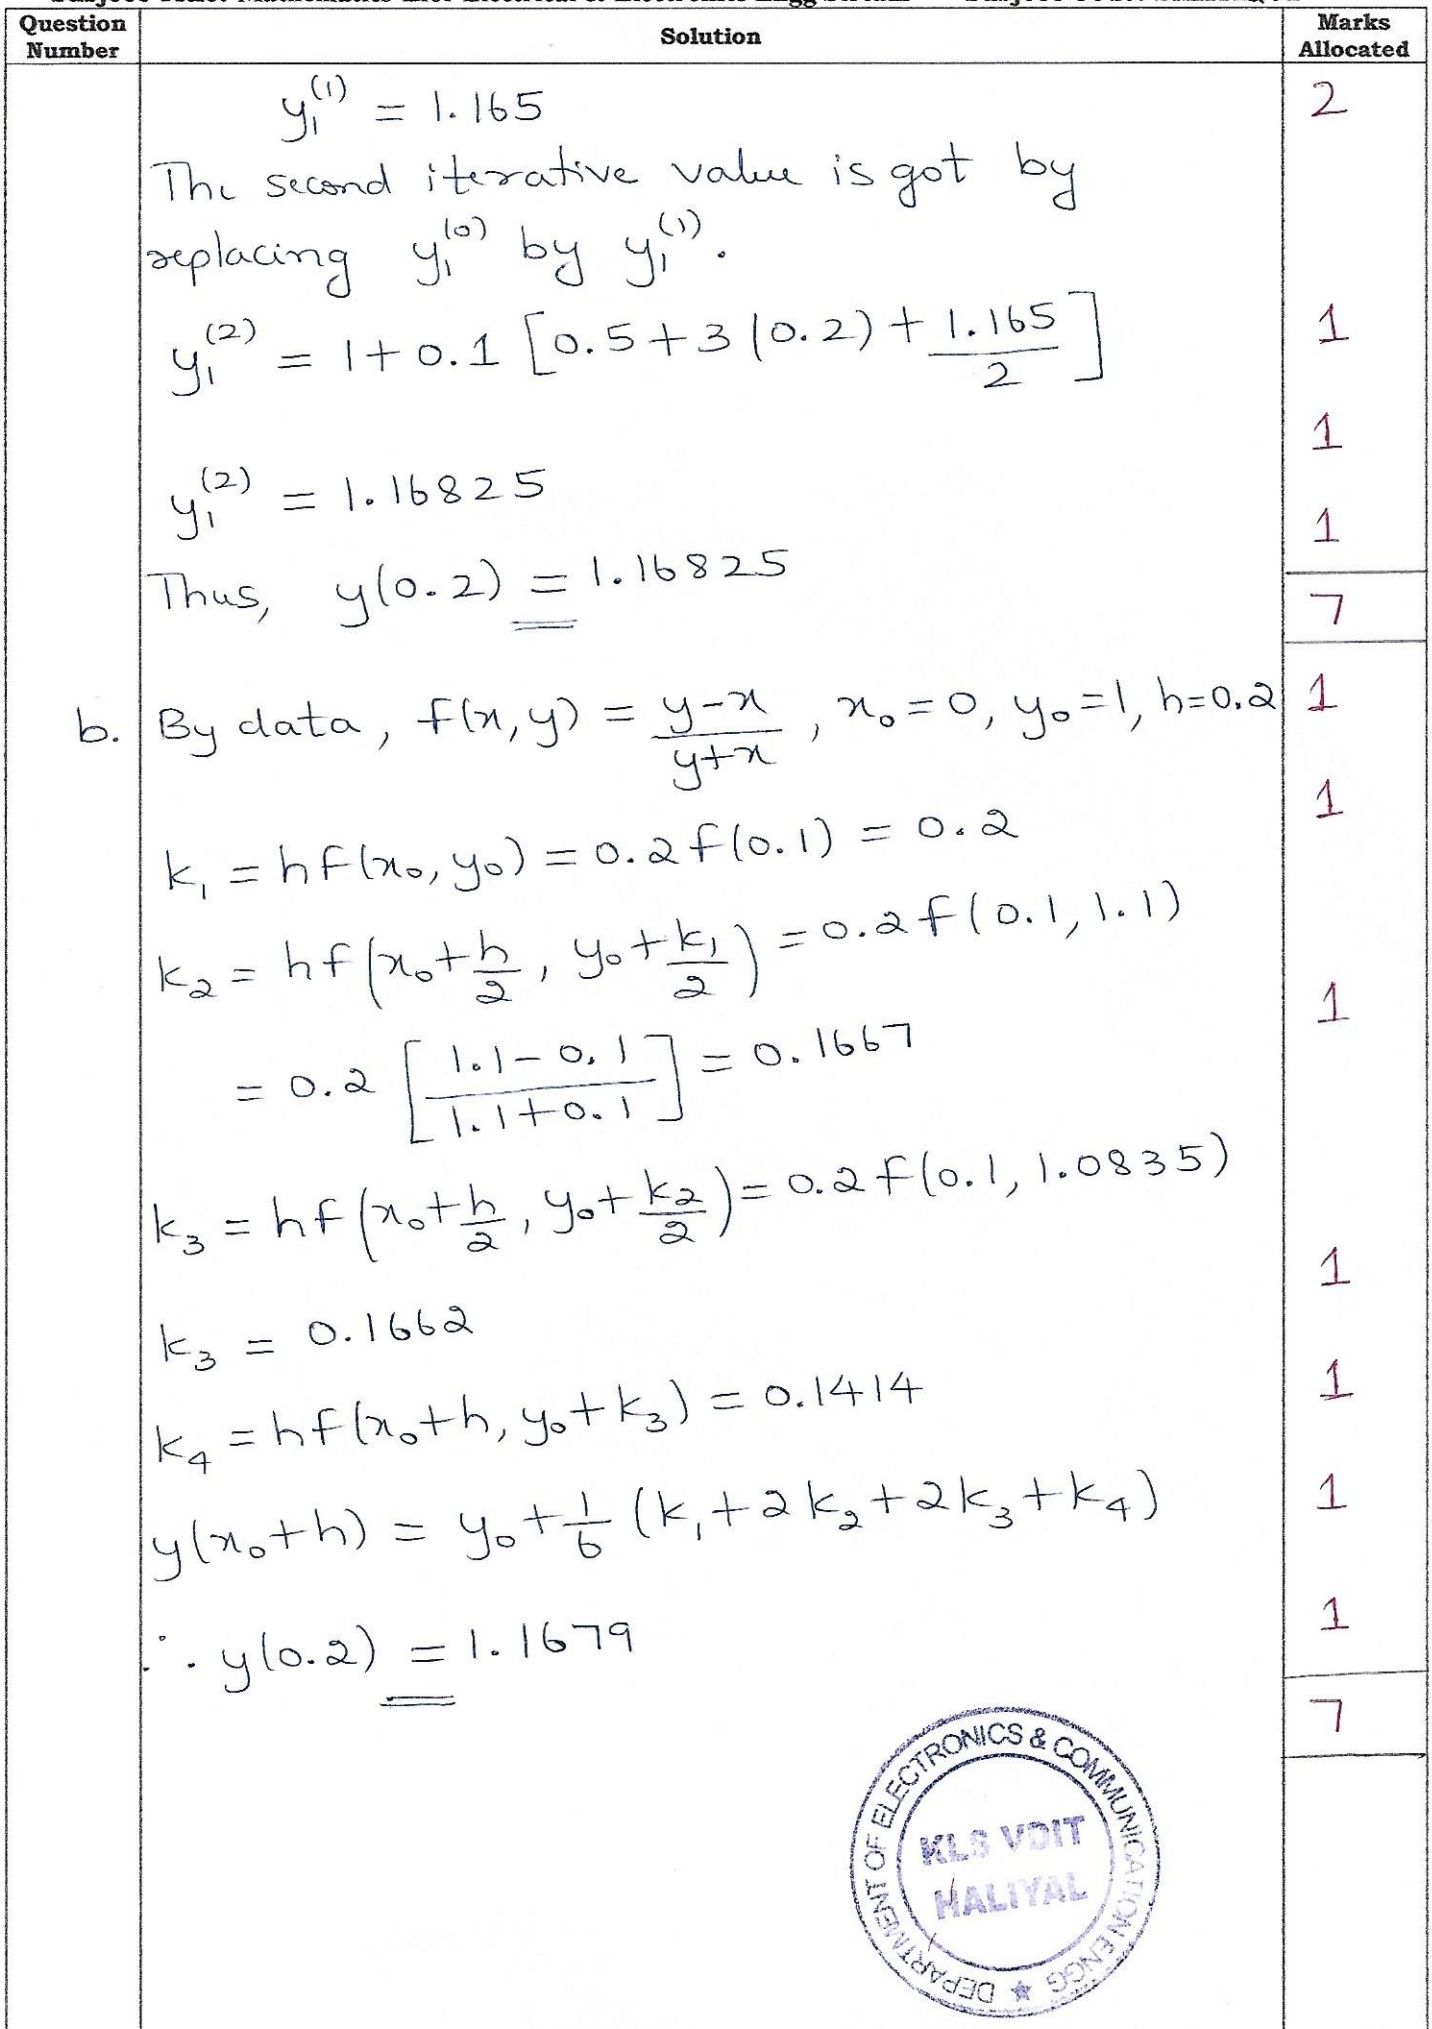 Question Number Solution Marks Allocated
y₁⁽¹⁾ = 1.165 2
The second iterative value is got by
replacing y₁⁽⁰⁾ by y₁⁽¹⁾.
y₁⁽²⁾ = 1 + 0.1 [0.5 + 3(0.2) + 1.165/2] 1
1
y₁⁽²⁾ = 1.16825
1
Thus, y(0.2) = 1.16825
7
b. By data, f(x, y) = (y-x)/(y+x), x₀ = 0, y₀ = 1, h = 0.2 1
1
k₁ = hf(x₀, y₀) = 0.2 f(0.1) = 0.2
k₂ = hf(x₀ + h/2, y₀ + k₁/2) = 0.2 f(0.1, 1.1)
1
= 0.2 [(1.1 - 0.1)/(1.1 + 0.1)] = 0.1667
k₃ = hf(x₀ + h/2, y₀ + k₂/2) = 0.2 f(0.1, 1.0835)
1
k₃ = 0.1662
1
k₄ = hf(x₀ + h, y₀ + k₃) = 0.1414
y(x₀ + h) = y₀ + 1/6 (k₁ + 2k₂ + 2k₃ + k₄) 1
∴ y(0.2) = 1.1679 1
7
DEPARTMENT OF ELECTRONICS & COMMUNICATION ENGG ★
KLS VDIT
HALIYAL